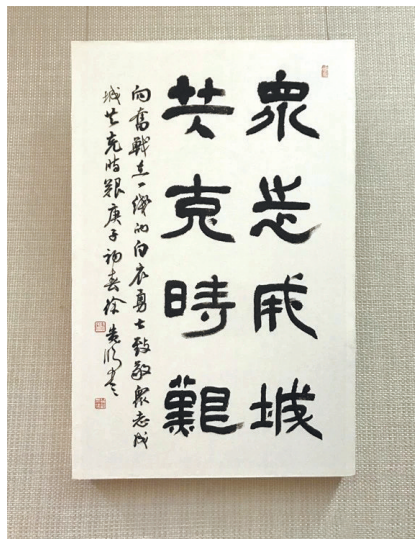 眾志成城
共克時艱
向奮戰在一綫的白衣勇士致敬眾志成
城共克時艱庚子初春徐